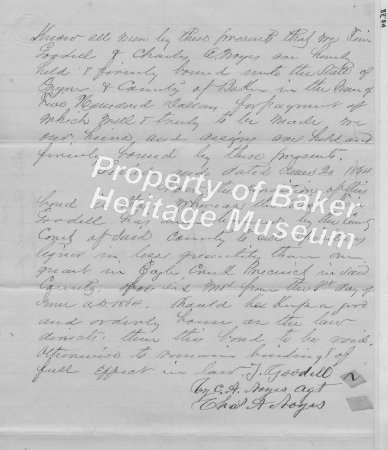 Know all men by these presents that we Tim
Goodell & Charley A. Noyes are
held & firmly bound unto the State of
Oregon & County of Baker in the Sum of
Five Hundred Dollars for payment of
which well & truly to be made we
our heirs and assigns are held and
firmly bound by these presents.
dated June 20 1864
of this
bond is Whereas
Goodell has by the County
Court of Said County to
liquors in less quantity than one
quart in Eagle Creek Precinct in Said
County for from the 1st day of
June A.D. 1864. Should he keep a good
and orderly house as the law
directs then this bond to be void.
Otherwise to remain binding & of
full effect in law. J. Goodell
by C. A. Noyes agt
Chas A Noyes
2
Property of Baker
Heritage Museum